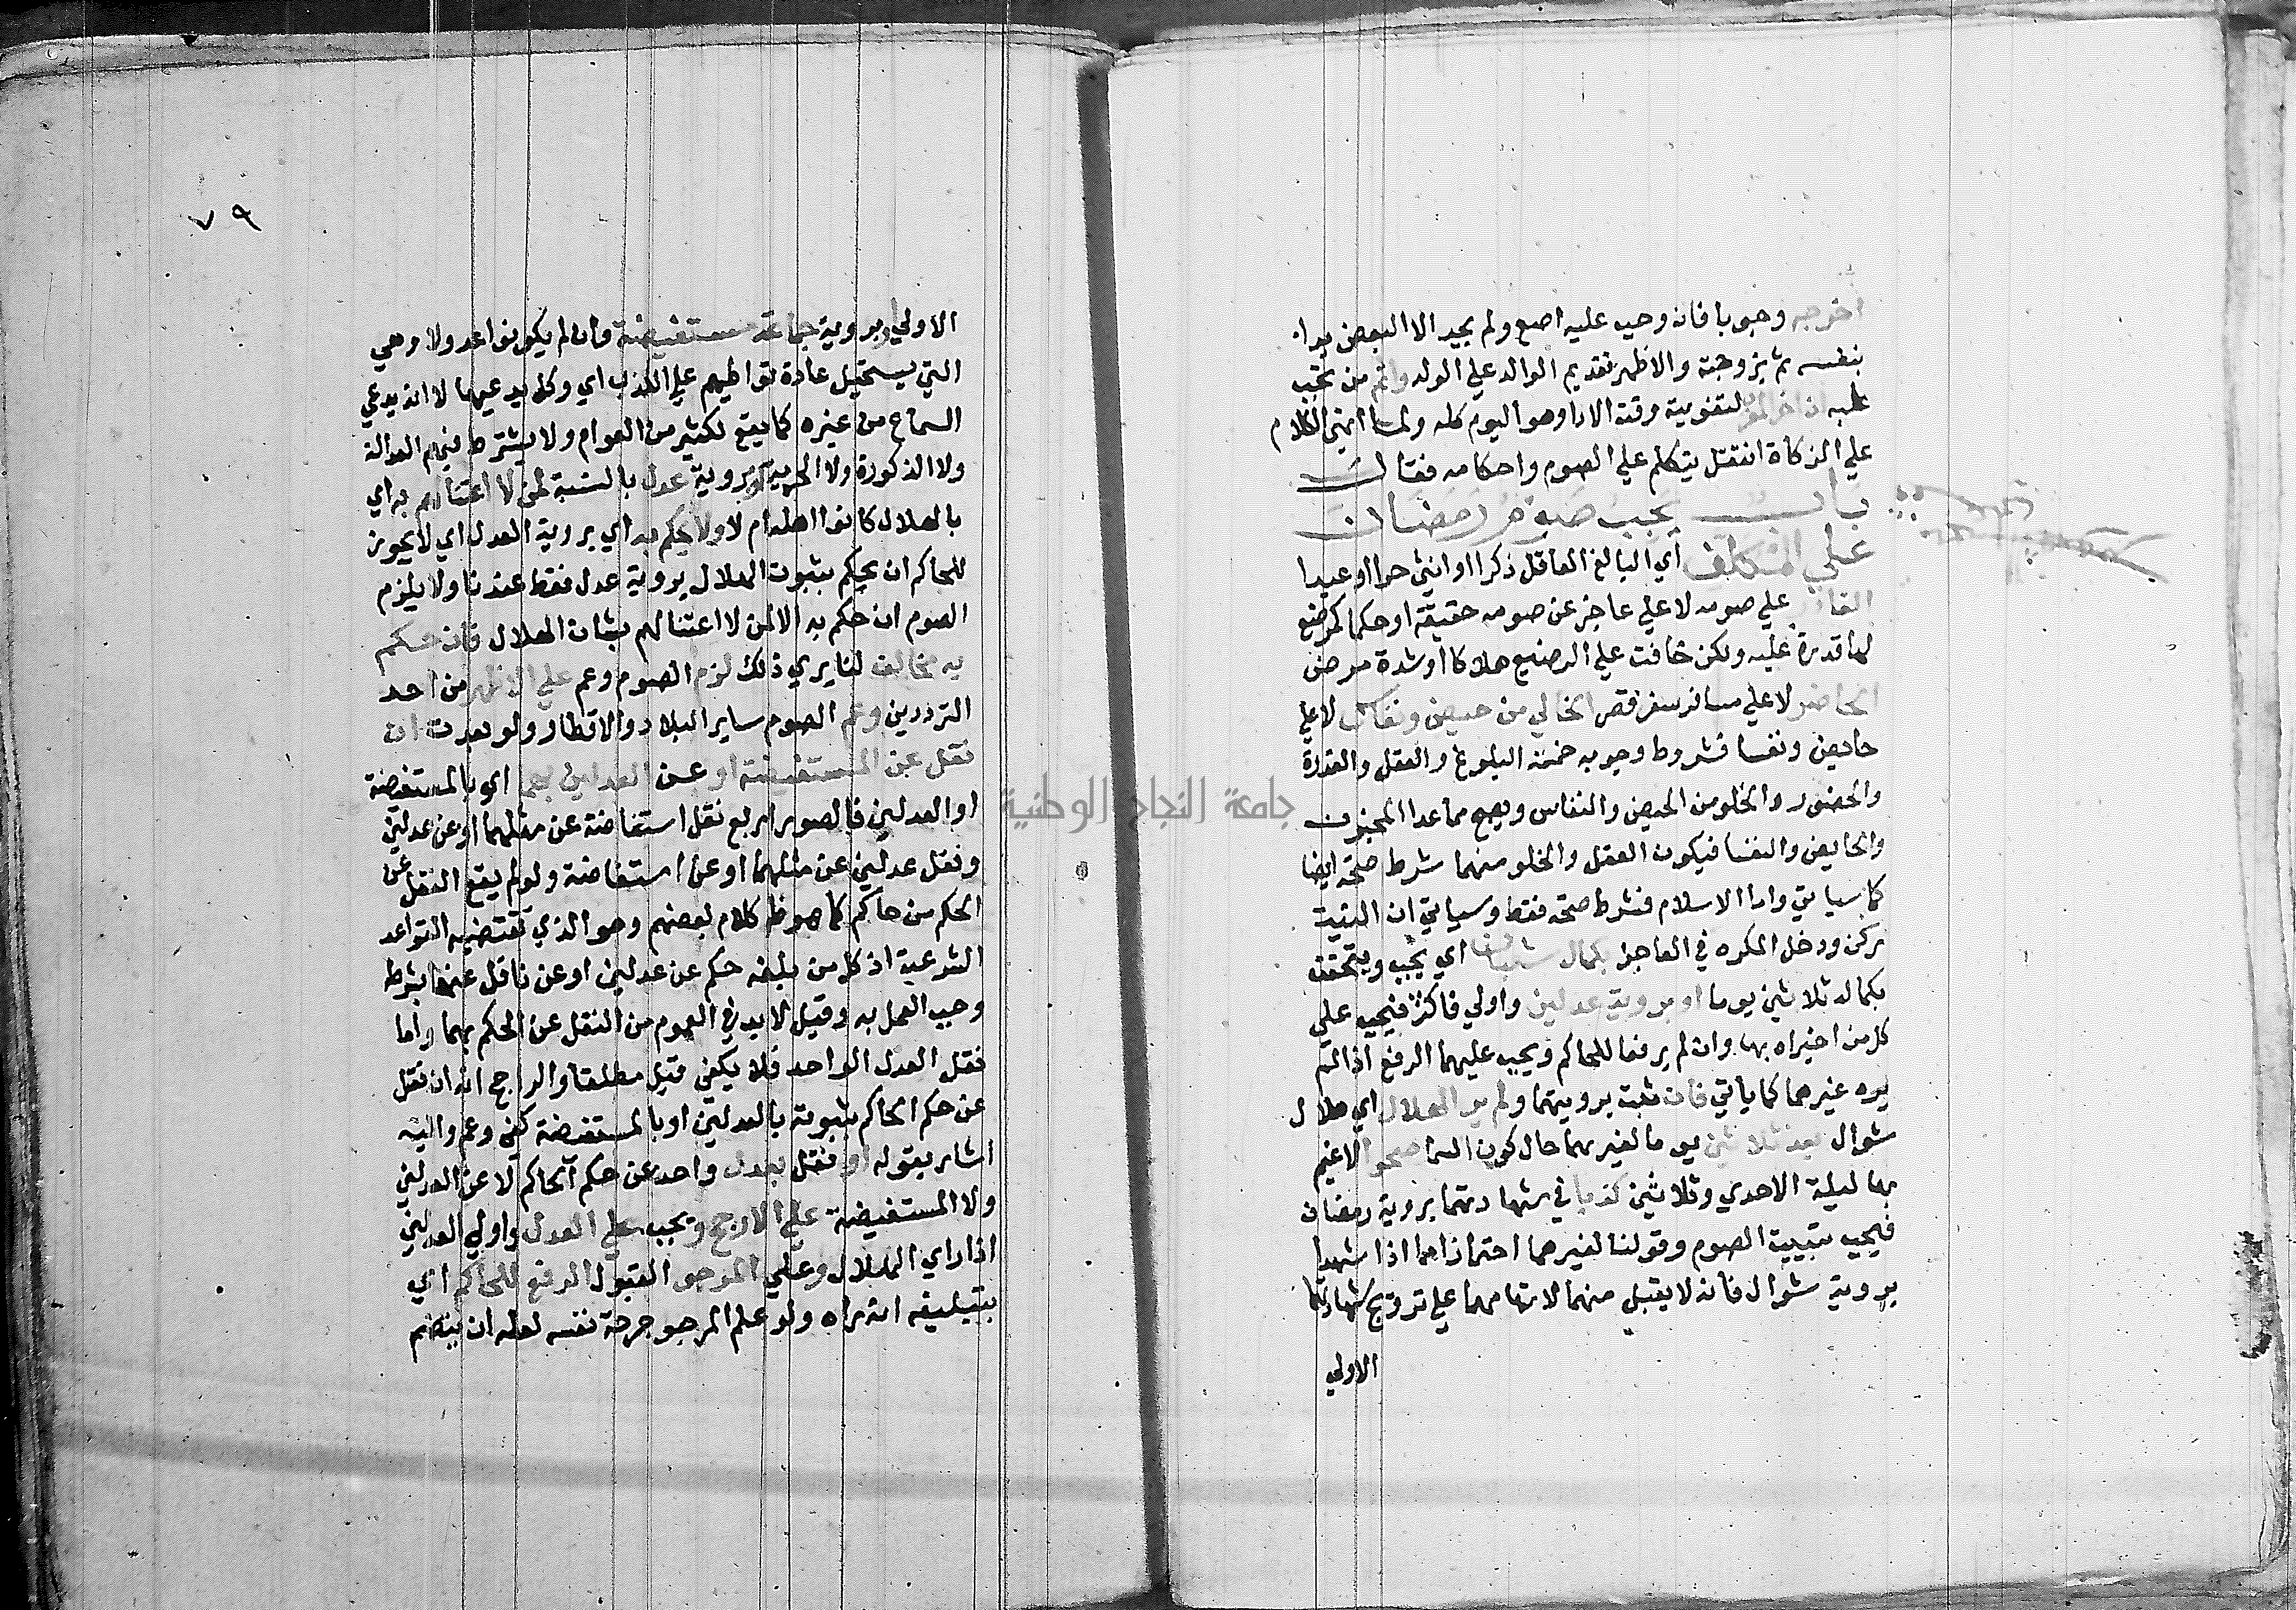 اخرجه وجوبا فانه وجب عليه اصع ولم يجد الا البعض بدا
بنفسه ثم بزوجته والاظهر تقديم الوالد علي الولد واثم من تجب
عليه ان اخر لتفويته وقته الادا وهو اليوم كله ولما انهي الكلام
علي الزكاة انتقل يتكلم علي الصوم واحكامه فقال
باب يجب صوم رمضان
علي المكلف اي البالغ العاقل ذكرا او انثي حرا او عبدا
القادر علي صومه لا علي عاجز عن صومه حقيقة او حكما كمرضع
لها قدرة عليه ولكن خافت علي الرضيع هلاكا او شدة مرض
الحاضر لا علي مسافر سفر قصر الخالي من حيض ونفاس لا علي
حايض ونفسا فشروط وجوبه خمسة البلوغ والعقل والقدرة
والحضور والخلو من الحيض والنفاس ويصح مما عدا المجنون
والحايض والنفسا فيكون العقل والخلو منهما شرط صحة ايضا
كما سياتي واما الاسلام فشرط صحة فقط وسياتي ان النية
ركن ودخل المكره في العاجز بكمال شعبان اي يجب ويتحقق
بكماله ثلاثين يوما او بروية عدلين واولي فاكثر فيجب علي
كل من اخبراه بها وان لم يرفعا للحاكم ويجب عليهما الرفع اذا لم
يره غيرهما كما ياتي فان ثبت برويتهما ولم ير الهلال اي هلال
شوال بعد ثلاثين يوما لغيرهما حال كون السما صحوا لا غيم
بها ليلة الاحدي وثلاثين كذبا في شهادتهما بروية رمضان
فيجب تبييت الصوم وقولنا لغيرهما احترازا مما اذا شهدا
بروية شوال فانه لا يقبل منهما لاتهامهما علي ترويج شهادتهما
الاولي
٧٩
الاولي او بروية جماعة مستفيضة وان لم يكونوا عدولا وهي
التي يستحيل عادة تواطيهم علي الكذب اي وكل يدعيها لا انه يدعي
السماع من غيره كما يقع لكثير من العوام ولا يشترط فيهم العدالة
ولا الذكورة ولا الحرية وبروية عدل بالنسبة لمن لا اعتنا لهم به اي
بالهلال كانوا اهله ام لا ولا يحكم به اي بروية العدل اي لا يجوز
للحاكم ان يحكم بثبوت الهلال بروية عدل فقط عندنا ولا يلزم
الصوم ان حكم به الا لمن لا اعتنا لهم بشان الهلال فان حكم
به مخالف لنا يري ذلك لزم الصوم وعم علي الاظهر من احد
الترددين وعم الصوم ساير البلاد والاقطار ولو بعدت ان
نقل عن المستفيضة او عن العدلين بهما اي بالمستفيضة
او العدلين فالصور اربع نقل استفاضة عن مثلهما او عن عدلين
ونقل عدلين عن مثلهما او عن استفاضة ولو لم يقع النقل عن
الحكم من حاكم كما هو ظ كلام بعضهم وهو الذي تقتضيه القواعد
الشرعية اذ كل من بلغه حكم عن عدلين او عن ناقل عنهما بشرط
وجب العمل به وقيل لا بد في العموم من النقل عن الحكم بهما واما
نقل العدل الواحد فلا يكفي قيل مطلقا والراجح انه ان نقل
عن حكم الحاكم بثبوته بالعدلين او بالمستفيضة كفي وعم واليه
اشار بقوله او نقل بعدل واحد عن حكم الحاكم لا عن العدلين
ولا المستفيضة علي الارجح ويجب علي العدل واولي العدلين
اذا راي الهلال وعلي المرجو القبول الرفع للحاكم اي
بتبليغه انه راه ولو علم المرجو جرحة نفسه لعله ان ينضم
جامعة النجاح الوطنية